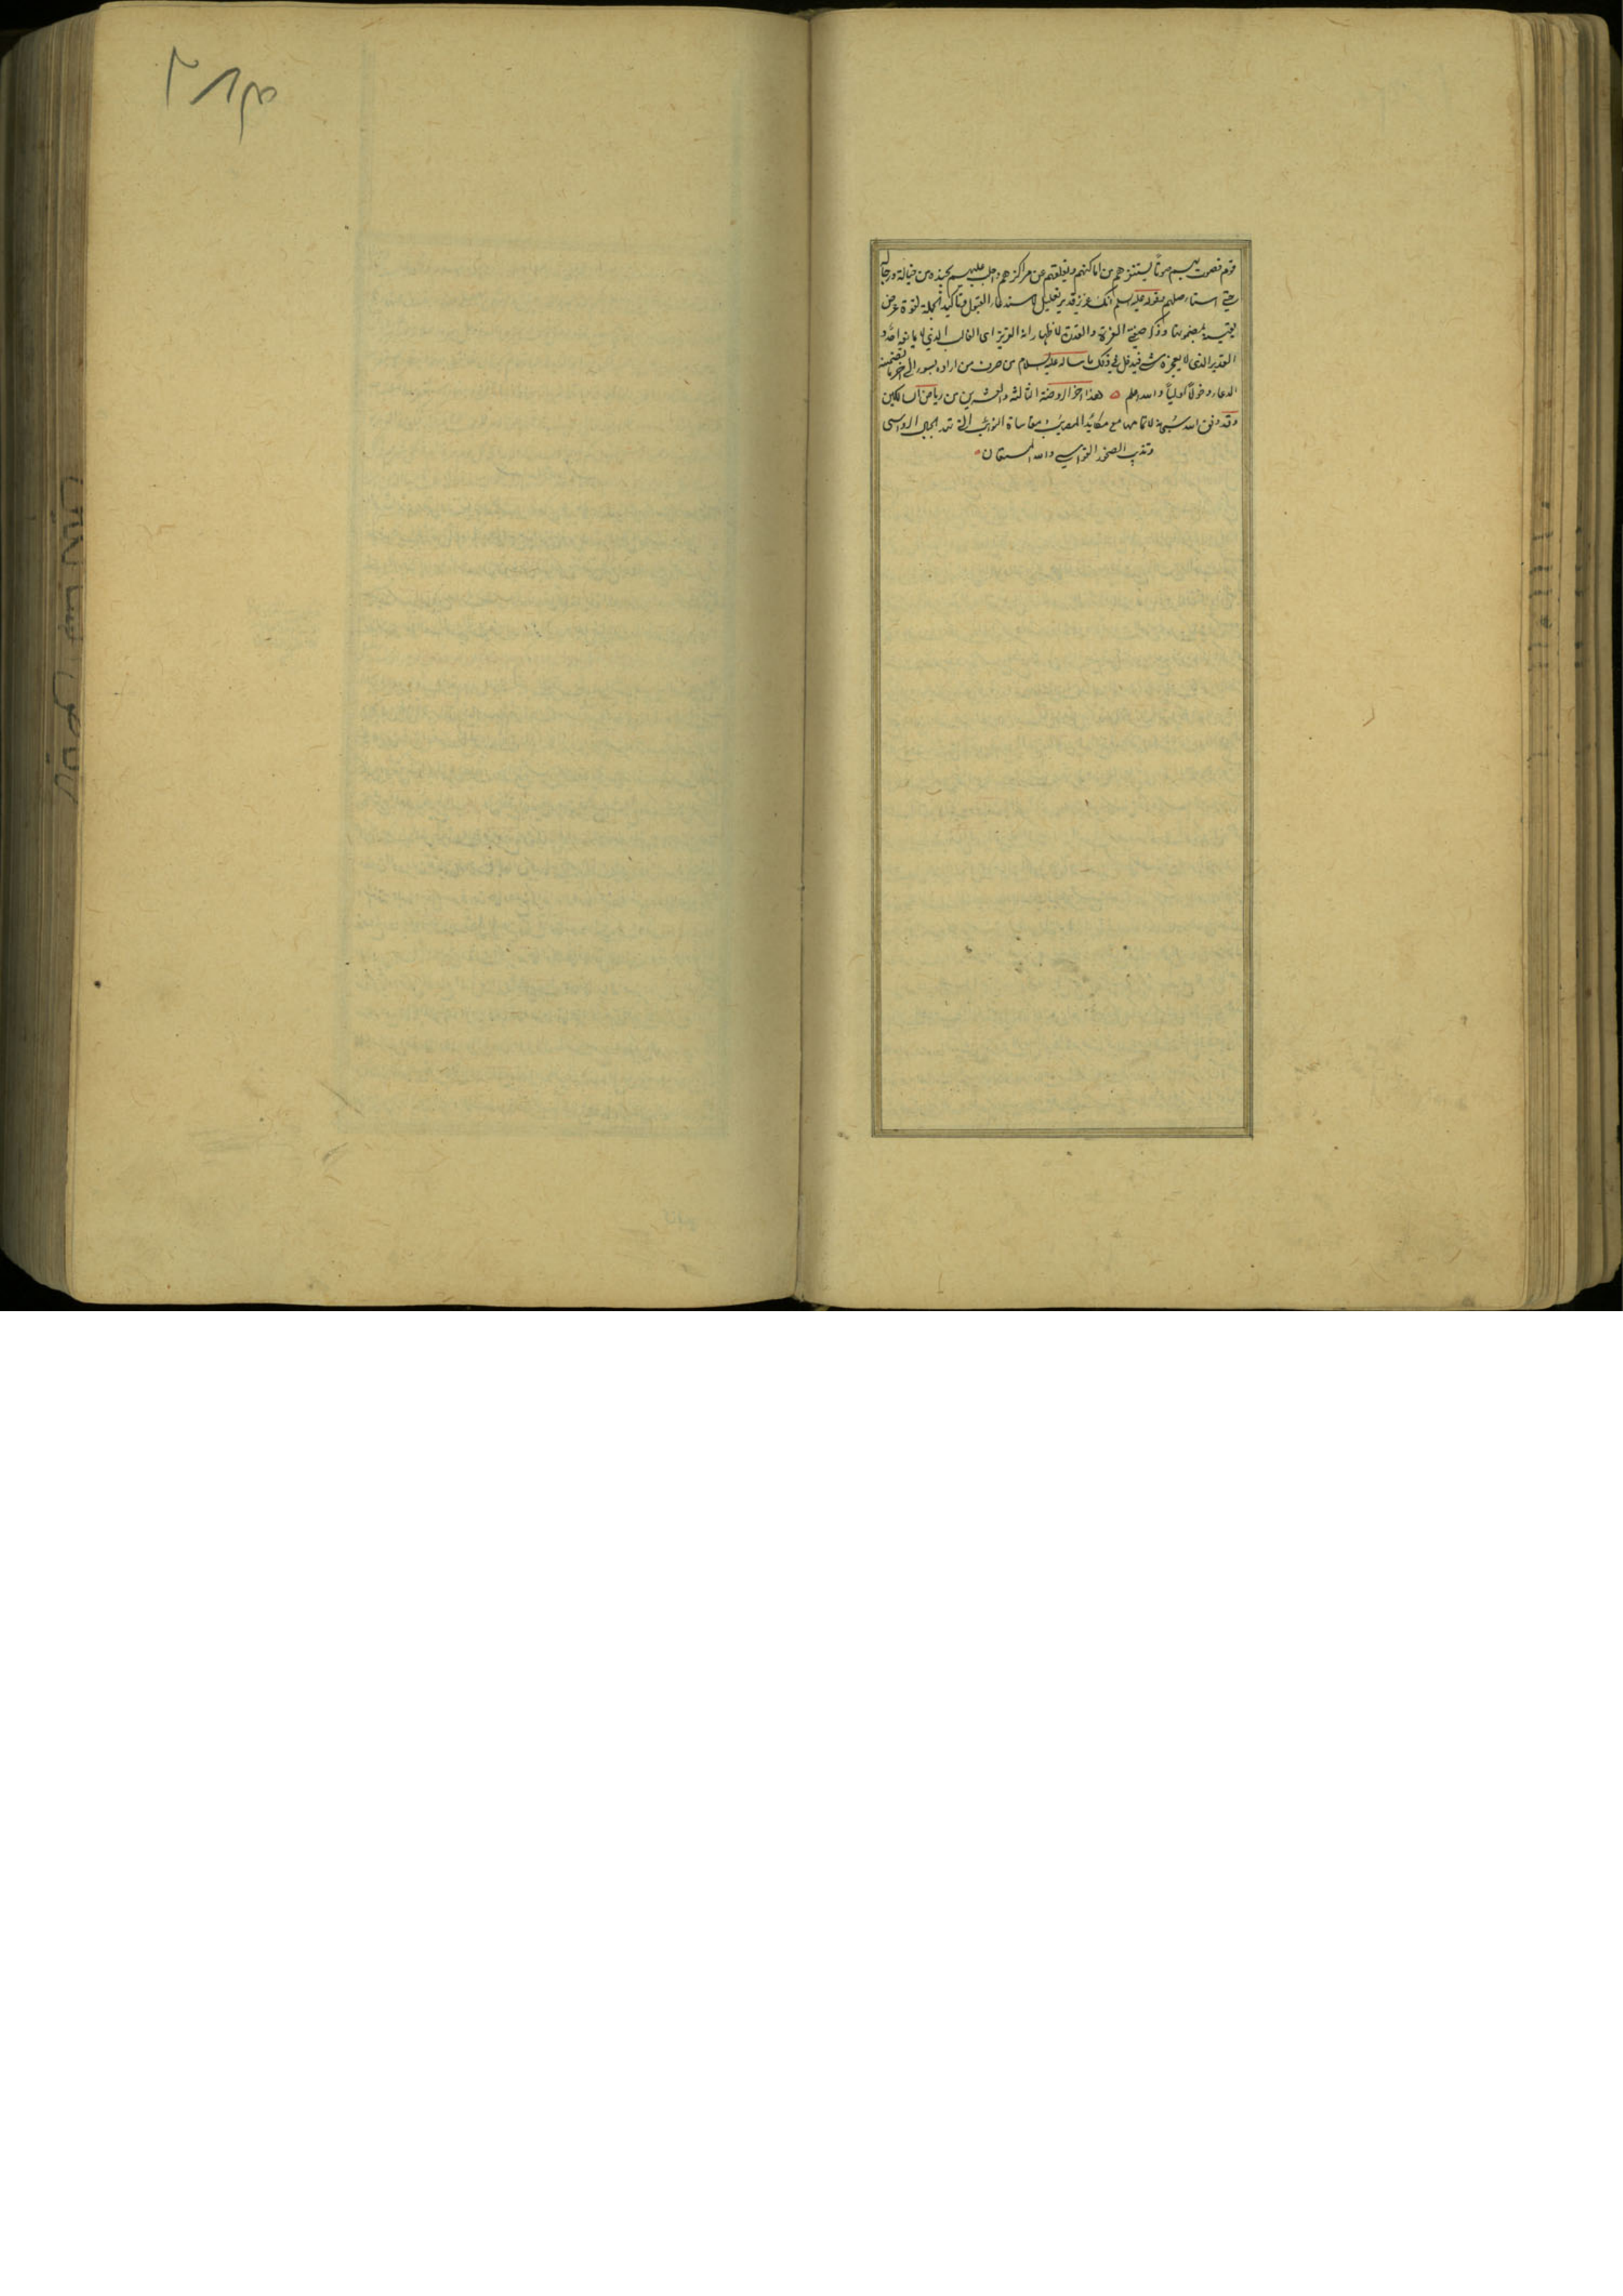 قوم فصوت بهم صوتاً يستفزهم من اماكنهم ويقلعهم عن مراكزهم واجلب عليهم بجنده من خيالة ورجالة
حتى استاصلهم قوله عليه السلام انك عزيز قدير تعليل لاستدعاء القبول وتاكيد الجملة لقوة عرض
يقينه بمضمونها وذكر صفتي العزة والقدرة لاظهار انه العزيز اى الغالب الذي لا
القدير الذى لا يعجزه شئ فيدخل في ذلك ما ساله عليه السلام من صرف من اراده بسوء الى اخر ما تضمنه
الدعاء دخولاً اولياً والله اعلم هذا اخر الروضة الثالثة والعشرين من رياض السالكين
وقد وفق الله سبحانه لاتمامها مع مكائد المصائب ومقاساة النوائب التي تهد الجبال الرواسى
وتذيب الصخور القواسي والله المستعان